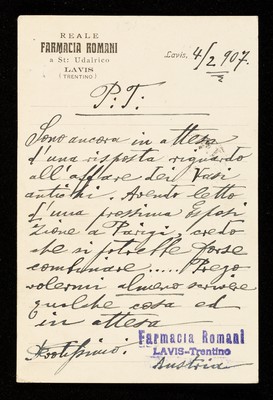 REALE
FARMACIA ROMANI
a St: Udalrico
LAVIS
(TRENTINO)
Lavis, 4/2 907.
P. T.:
Sono ancora in attesa
d'una risposta riguardo
all'affare dei Vasi
antichi. Avendo letto
d'una prossima Esposi
zione a Parigi, credo
che si potrebbe forse
combinare ..... Prego
volermi almeno scrivere
qualche cosa ed
in attesa
Devotissimo.
Farmacia Romani
LAVIS-Trentino
Austria